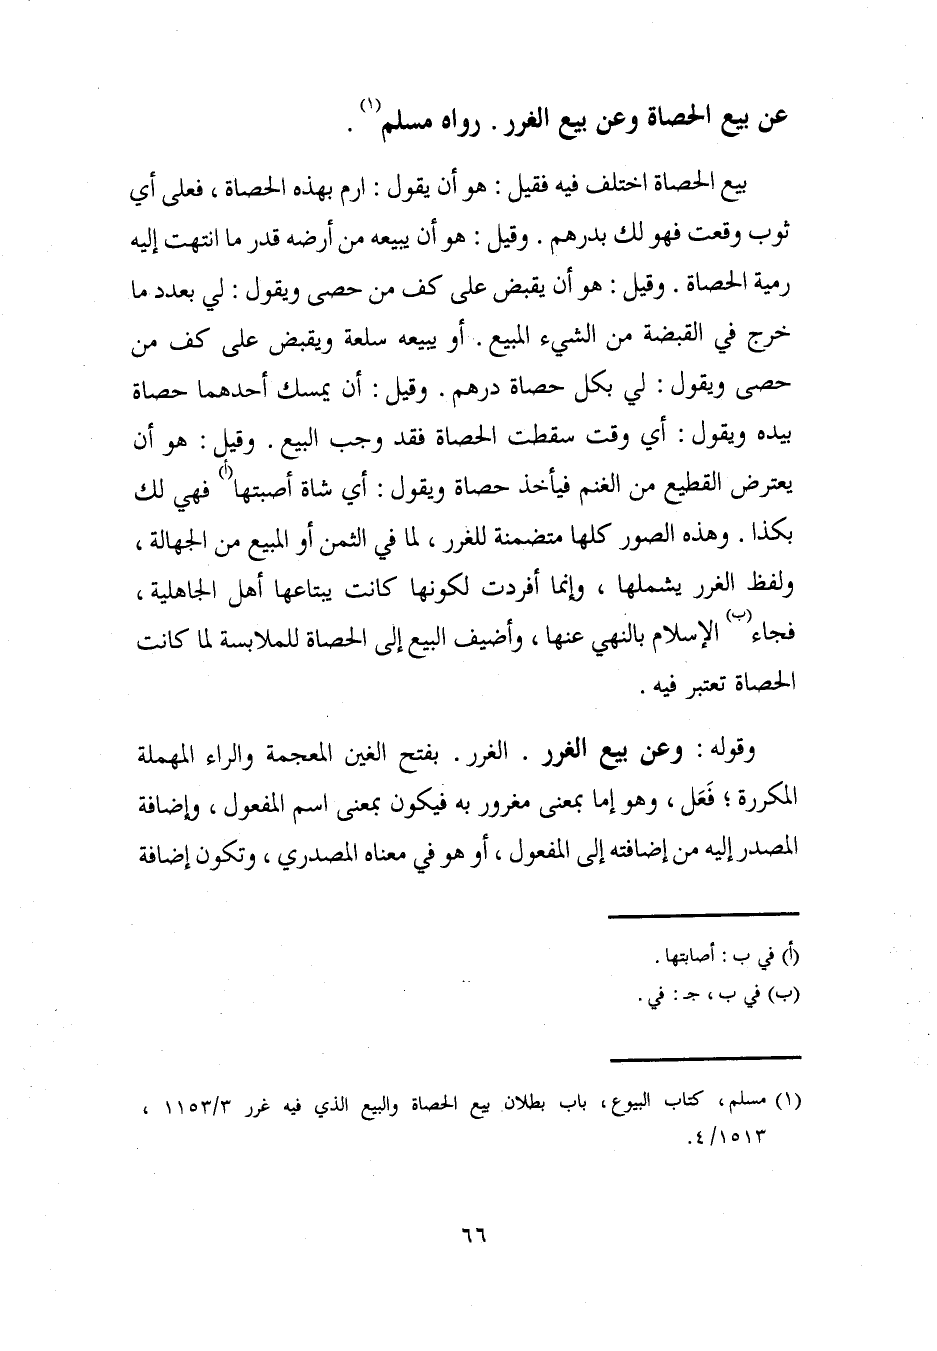 عن بيع الحصاة وعن بيع الغرر . رواه مسلم(١) .
بيع الحصاة اختلف فيه فقيل : هو أن يقول : ارم بهذه الحصاة ، فعلى أي
ثوب وقعت فهو لك بدرهم . وقيل : هو أن يبيعه من أرضه قدر ما انتهت إليه
رمية الحصاة . وقيل : هو أن يقبض على كف من حصى ويقول : لي بعدد ما
خرج في القبضة من الشيء المبيع . أو يبيعه سلعة ويقبض على كف من
حصى ويقول : لي بكل حصاة درهم . وقيل : أن يمسك أحدهما حصاة
بيده ويقول : أي وقت سقطت الحصاة فقد وجب البيع . وقيل : هو أن
يعترض القطيع من الغنم فيأخذ حصاة ويقول : أي شاة أصبتها(أ) فهي لك
بكذا . وهذه الصور كلها متضمنة للغرر ، لما في الثمن أو المبيع من الجهالة ،
ولفظ الغرر يشملها ، وإنما أفردت لكونها كانت يبتاعها أهل الجاهلية ،
فجاء(ب) الإسلام بالنهي عنها ، وأضيف البيع إلى الحصاة للملابسة لما كانت
الحصاة تعتبر فيه .
وقوله : وعن بيع الغرر . الغرر . بفتح الغين المعجمة والراء المهملة
المكررة ؛ فَعَل ، وهو إما بمعنى مغرور به فيكون بمعنى اسم المفعول ، وإضافة
المصدر إليه من إضافته إلى المفعول ، أو هو في معناه المصدري ، وتكون إضافة
(أ) في ب : أصابتها .
(ب) في ب ، جـ : في .
(١) مسلم ، كتاب البيوع ، باب بطلان بيع الحصاة والبيع الذي فيه غرر ١١٥٣/٣ ،
٤/١٥١٣.
٦٦